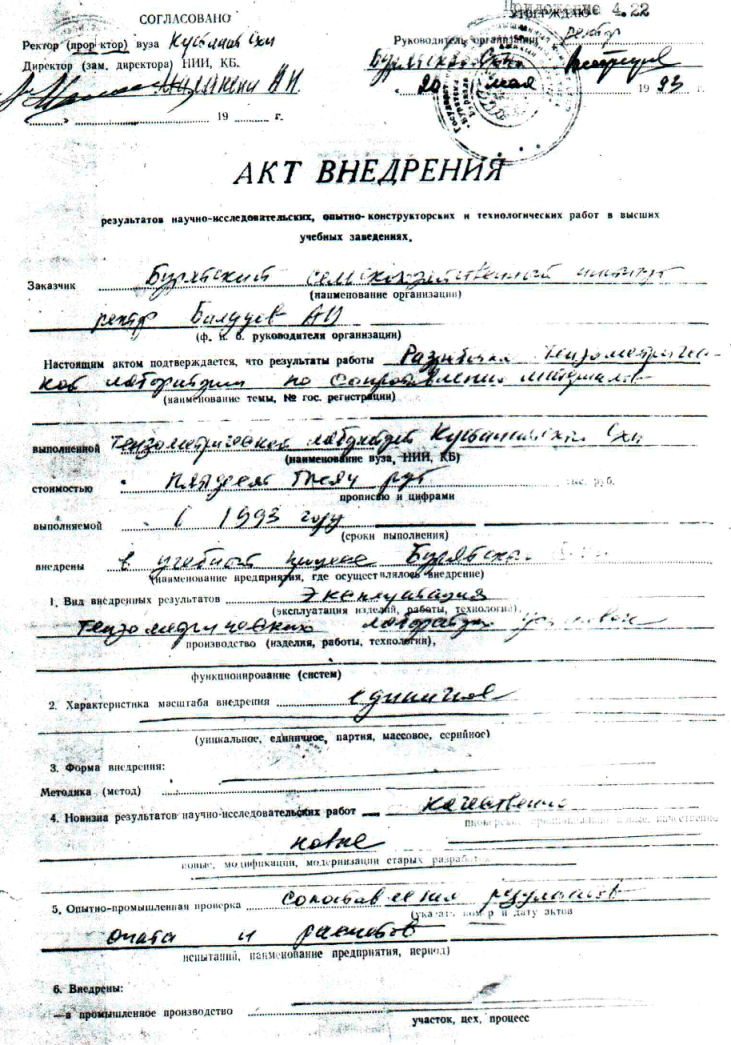 Приложение 4.22
СОГЛАСОВАНО
УТВЕРЖДАЮ
ректор
Ректор (прор ктор) вуза
Руководитель организации
Директор (зам. директора) НИИ, КБ.
А И.
20 мая 1993
19 г.
АКТ ВНЕДРЕНИЯ
результатов научно-исследовательских, опытно-конструкторских и технологических работ в высших
учебных заведениях.
Заказчик Бурятский сельскохозяйственный институт
(наименование организации)
ректор АИ
(ф. и. о. руководителя организации)
Настоящим актом подтверждается, что результаты работы Разработка тензометричес-
кой лаборатории по сопротивлению материалов
(наименование темы, № гос. регистрации)
выполненной тензометрической СХИ
(наименование вуза, НИИ, КБ)
стоимостью Пятдесят тысяч руб тыс. руб.
прописью и цифрами
выполняемой в 1993 году
(сроки выполнения)
внедрены в учебный процесс
(наименование предприятия, где осуществлялось внедрение)
1. Вид внедренных результатов эксплуатация
(эксплуатация изделий, работы, технологии),
тензометрических установок
производство (изделия, работы, технологии),
функционирование (систем)
2. Характеристика масштаба внедрения единичное
(уникальное, единичное, партия, массовое, серийное)
3. Форма внедрения:
Методика (метод)
4. Новизна результатов научно-исследовательских работ качественно
новые
новые, модификации, модернизации старых разработок
5. Опытно-промышленная проверка сопоставления результатов
(указать номер и дату актов
опыта и расчетов
испытаний, наименование предприятия, период)
6. Внедрены:
—в промышленное производство
участок, цех, процесс